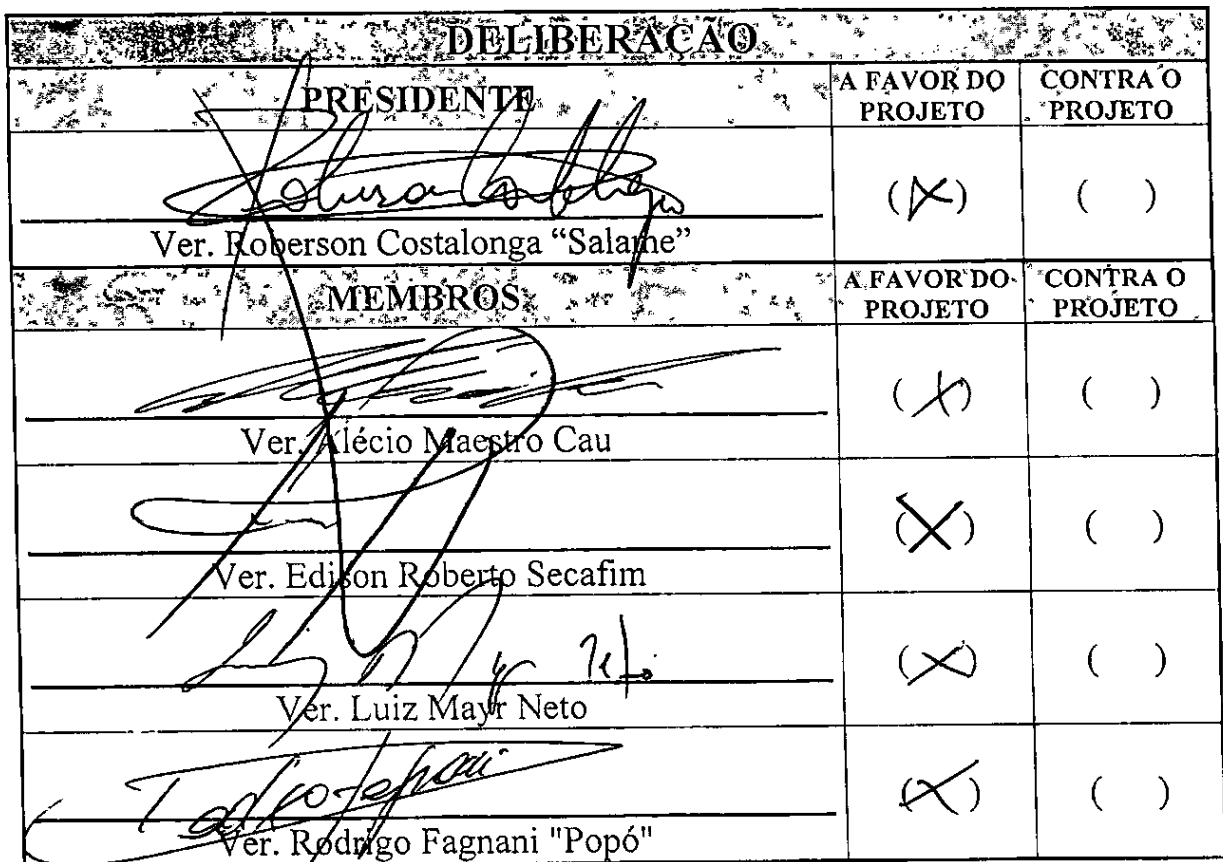 DELIBERAÇÃO
PRESIDENTE A FAVOR DO PROJETO CONTRA O PROJETO
(X) ( )
Ver. Roberson Costalonga “Salame”
MEMBROS A FAVOR DO PROJETO CONTRA O PROJETO
(X) ( )
Ver. Alécio Maestro Cau
(X) ( )
Ver. Edison Roberto Secafim
(X) ( )
Ver. Luiz Mayr Neto
(X) ( )
Ver. Rodrigo Fagnani "Popó"